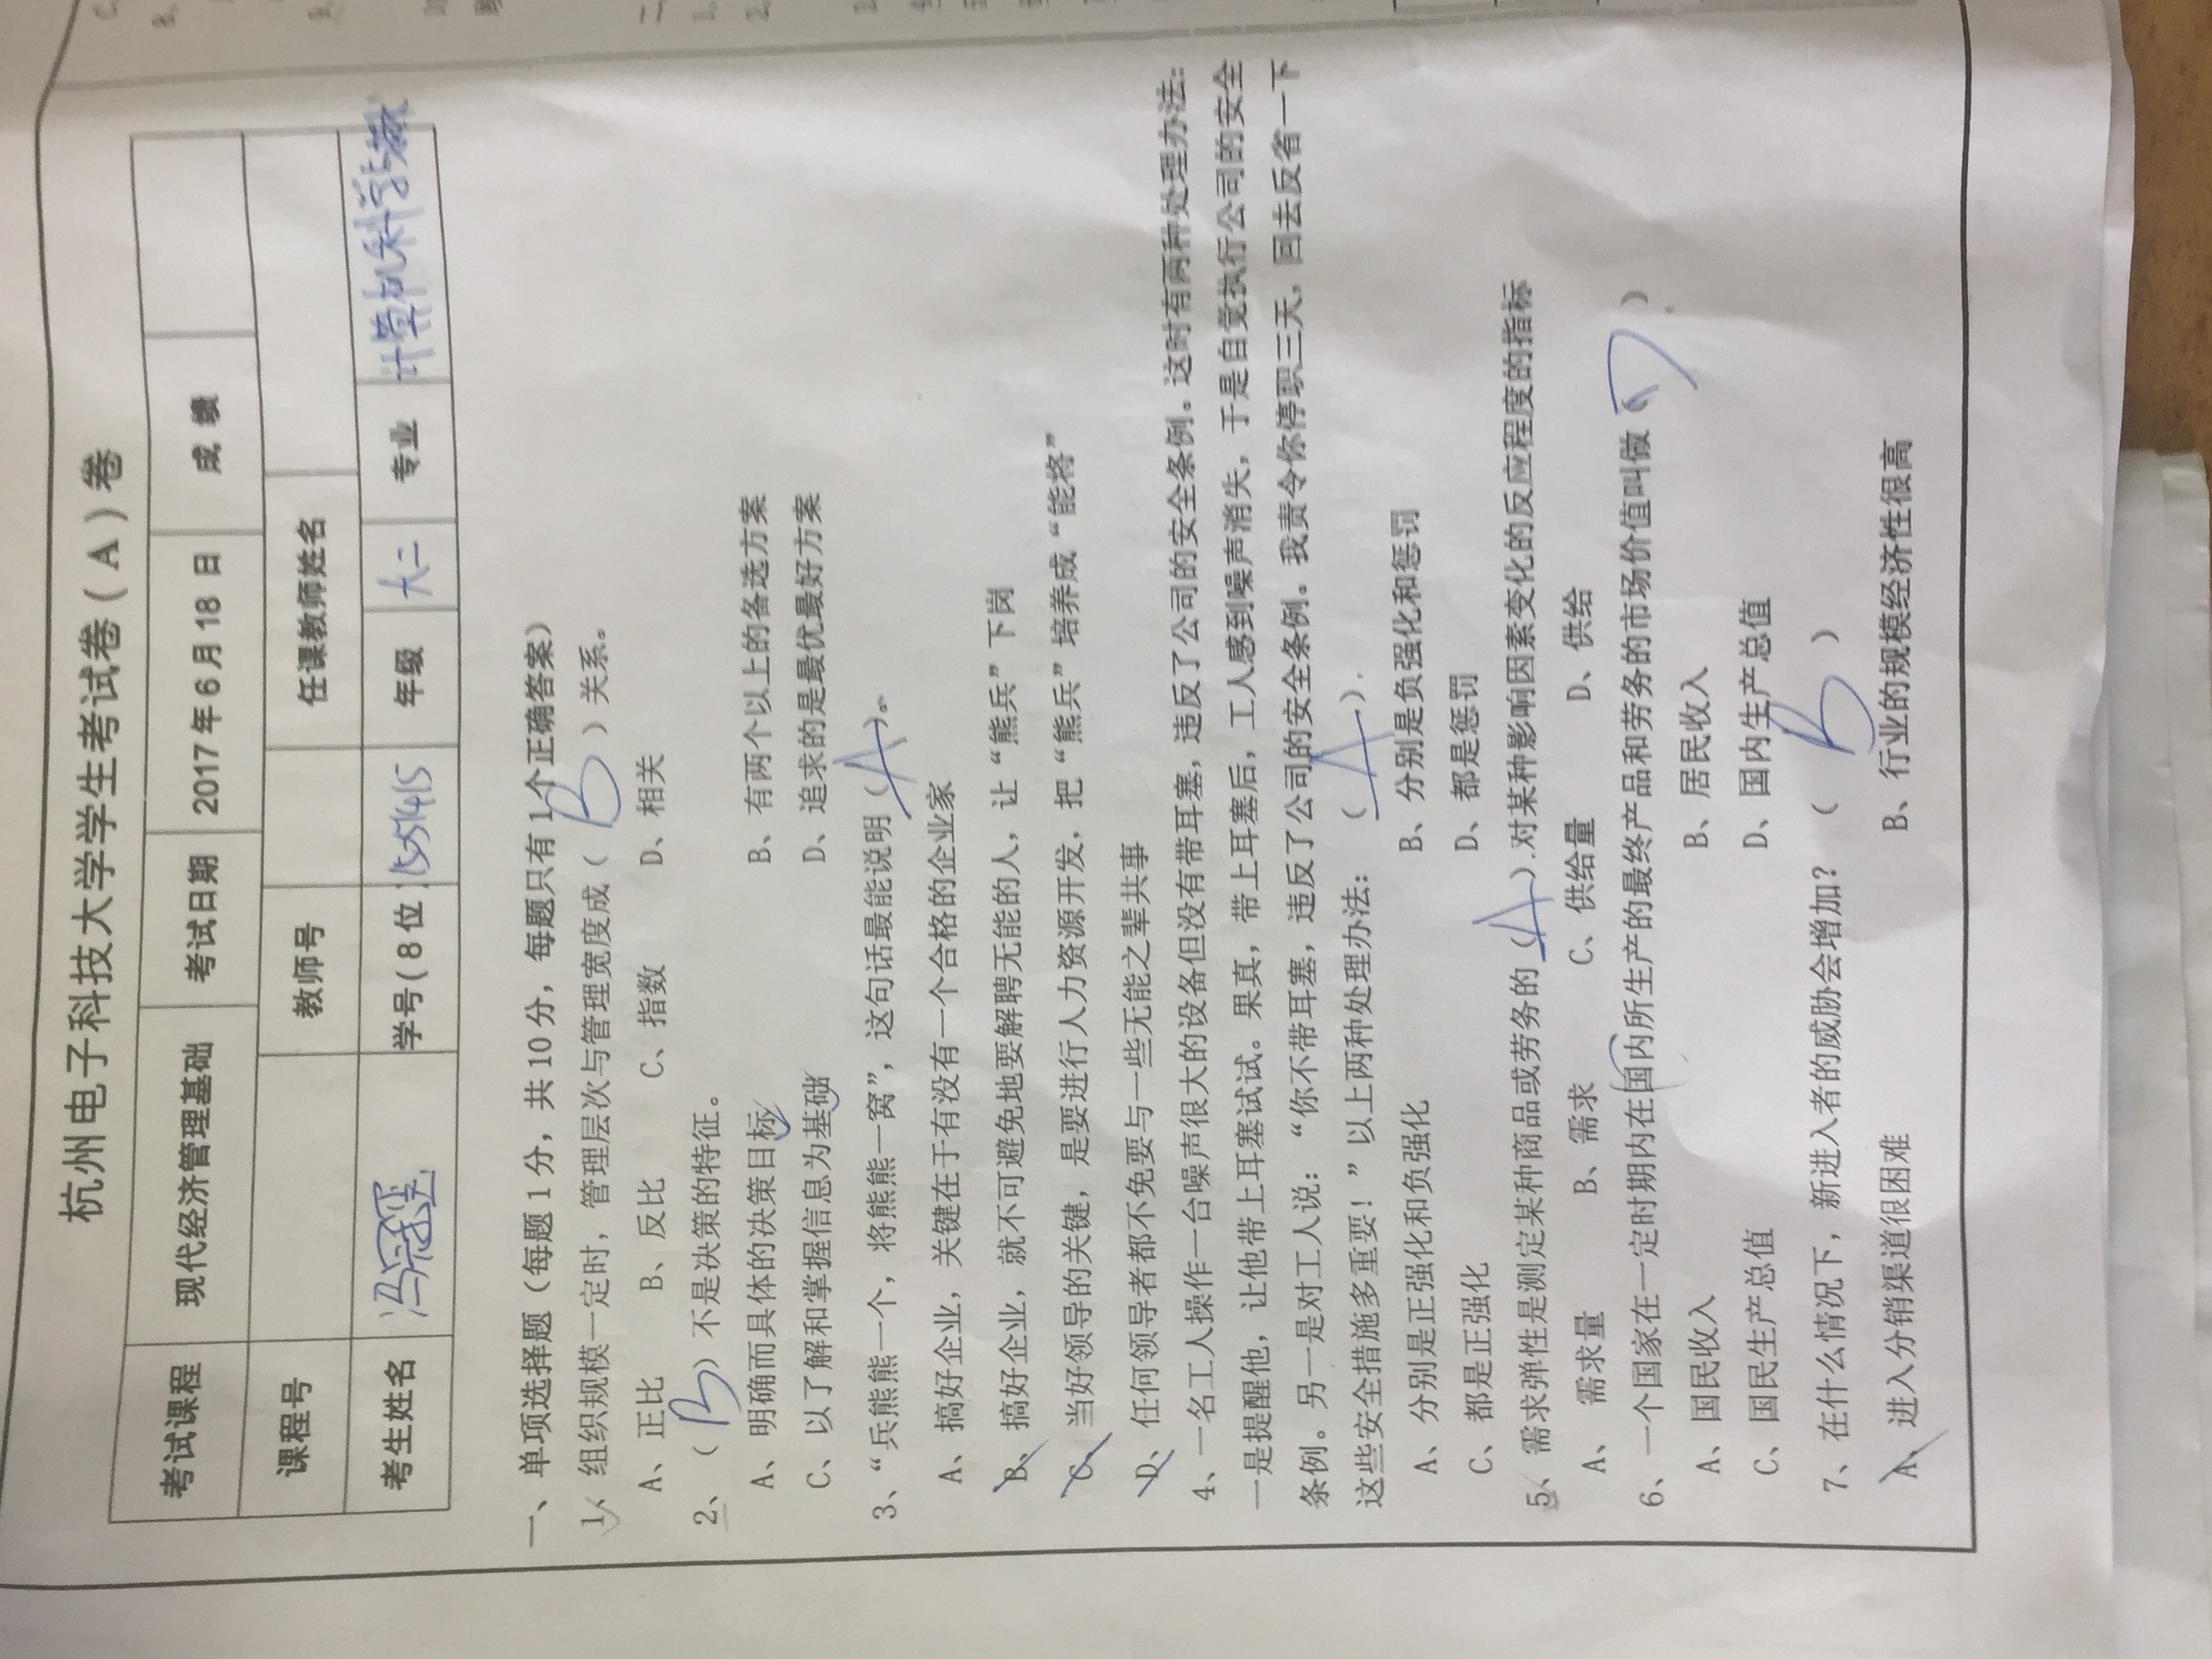 杭州电子科技大学学生考试卷（A）卷
考试课程 现代经济管理基础 考试日期 2017年6月18日 成绩
课程号 教师号 任课教师姓名
考生姓名 学号(8位) 15051415 年级 大二 专业 计算机科学与
一、单项选择题（每题1分，共10分，每题只有1个正确答案）
1、组织规模一定时，管理层次与管理宽度成（ B ）关系。
A、正比 B、反比 C、指数 D、相关
2、（ B ）不是决策的特征。
A、明确而具体的决策目标 B、有两个以上的备选方案
C、以了解和掌握信息为基础 D、追求的是最优最好方案
3、“兵熊熊一个，将熊熊一窝”，这句话最能说明（ A ）。
A、搞好企业，关键在于有没有一个合格的企业家
B、搞好企业，就不可避免地要解聘无能的人，让“熊兵”下岗
C、当好领导的关键，是要进行人力资源开发，把“熊兵”培养成“能将”
D、任何领导者都不免要与一些无能之辈共事
4、一名工人操作一台噪声很大的设备但没有带耳塞，违反了公司的安全条例。这时有两种处理办法：
一是提醒他，让他带上耳塞试试。果真，带上耳塞后，工人感到噪声消失，于是自觉执行公司的安全
条例。另一是对工人说：“你不带耳塞，违反了公司的安全条例。我责令你停职三天，回去反省一下
这些安全措施多重要！”以上两种处理办法：（ A ）.
A、分别是正强化和负强化 B、分别是负强化和惩罚
C、都是正强化 D、都是惩罚
5、需求弹性是测定某种商品或劳务的（ A ）.对某种影响因素变化的反应程度的指标
A、 需求量 B、需求 C、供给量 D、供给
6、一个国家在一定时期内在国内所生产的最终产品和劳务的市场价值叫做（ D ）.
A、国民收入 B、居民收入
C、国民生产总值 D、国内生产总值
7、在什么情况下，新进入者的威胁会增加？（ B ）
A、进入分销渠道很困难 B、行业的规模经济性很高